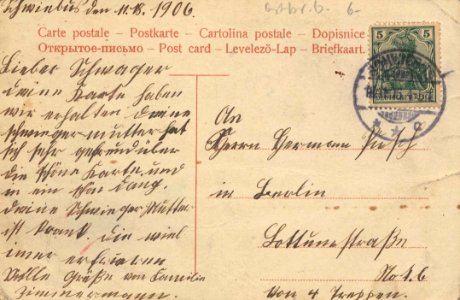 Schwiebus den 11.8.1906.
6-
5 5
Carte postale – Postkarte – Cartolina postale – Dopisnice
Открытое-письмо – Post card – Levelező-Lap – Briefkaart.
Lieber Schwager
deine Karte haben
wir erhalten deine
schwiegermutter hat
sich sehr gefreud über
die schöne Karte, und
deine Schwieger Mutter
ist krank die viel
Volle Grüße von Familie
Zimmermann.
An
Herrn Hermann
in Berlin
Lottumstraße
No 1.6
Von 4 Treppen.